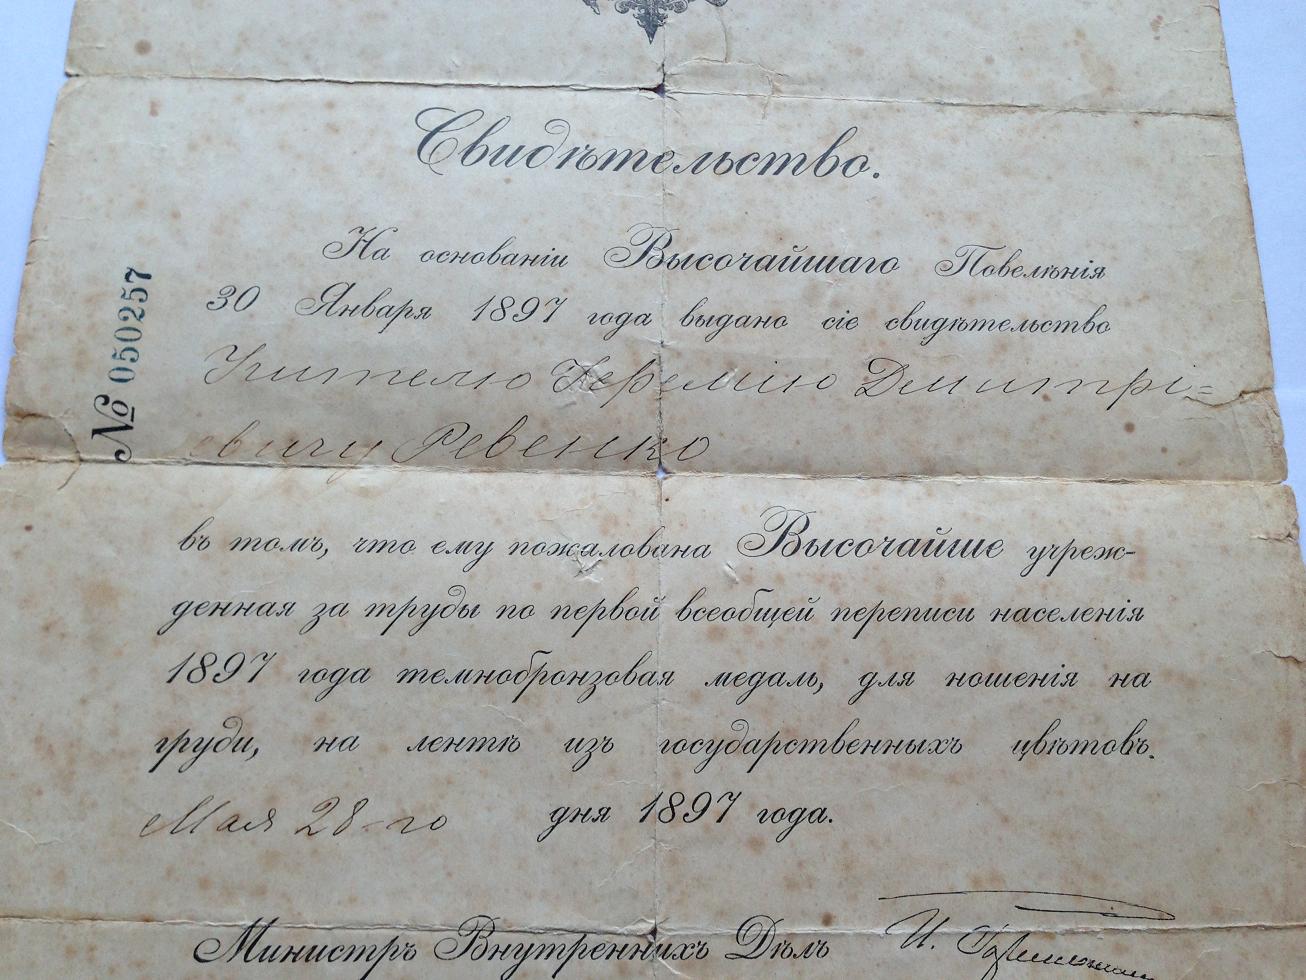 Свидѣтельство.
На основаніи Высочайшаго Повелѣнія
30 Января 1897 года выдано сіе свидѣтельство
Учителю Іереміѣю Дмитрі=
евичу Ревенко
въ томъ, что ему пожалована Высочайше учреж-
денная за труды по первой всеобщей переписи населенія
1897 года темнобронзовая медаль, для ношенія на
груди, на лентѣ изъ государственныхъ цвѣтовъ.
Мая 28-го дня 1897 года.
Министръ Внутреннихъ Дѣлъ И. Горемыкин
№ 050257